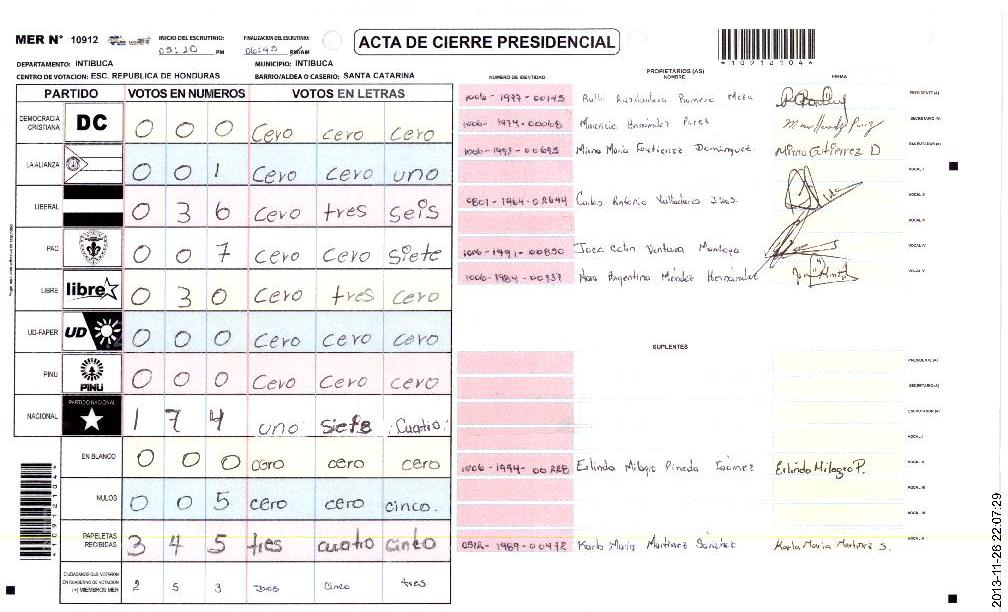 MER N° 10912 INICIO DEL ESCRUTINIO: PM FINALIZACION DEL ESCRUTINIO: 06:45 PM/AM ACTA DE CIERRE PRESIDENCIAL *10912104*
DEPARTAMENTO: INTIBUCA MUNICIPIO: INTIBUCA
CENTRO DE VOTACION: ESC. REPUBLICA DE HONDURAS BARRIO/ALDEA O CASERIO: SANTA CATARINA
PARTIDO VOTOS EN NUMEROS VOTOS EN LETRAS
DEMOCRACIA CRISTIANA DC 0 0 0 Cero cero cero
LA ALIANZA 0 0 1 Cero Cero uno
LIBERAL 0 3 6 Cero tres seis
PAC 0 0 7 Cero Cero Siete
LIBRE libre 0 3 0 Cero tres cero
UD-FAPER UD 0 0 0 Cero Cero cero
PINU PINU 0 0 0 Cero cero cero
NACIONAL PARTIDO NACIONAL 1 7 4 uno siete Cuatro
EN BLANCO 0 0 0 cero cero cero
NULOS 0 0 5 cero cero cinco.
PAPELETAS RECIBIDAS 3 4 5 tres cuatro cinco
CIUDADANOS QUE VOTARON EN CUADERNO DE VOTACION (+) MIEMBROS MER 2 5 3 Dos Cinco tres
*10912104*
PROPIETARIOS (AS)
NUMERO DE IDENTIDAD NOMBRE FIRMA
1006-1977-00145 Romero Meza PRESIDENTE (A)
1006-1974-00068 Mauricio Hernández Perez SECRETARIO (A)
1006-1993-00695 Mirna Maria Gutierrez Domínguez. Mirna Gutierrez D ESCRUTADOR (A)
VOCAL I
0801-1964-02644 Carlos Antonio Valladares VOCAL II
VOCAL III
1006-1991-00850 Jose Ventura Montoya VOCAL IV
1006-1984-00937 Argentina Méndez Hernández VOCAL V
SUPLENTES
PRESIDENTE (A)
SECRETARIO (A)
ESCRUTADOR (A)
VOCAL I
1006-1994-00228 Erlinda Milagro Pineda Gómez Erlinda Milagro P. VOCAL II
VOCAL III
VOCAL IV
Karla Maria Martinez Sánchez Karla Maria Martinez S. VOCAL V
2013-11-26 22:07:29